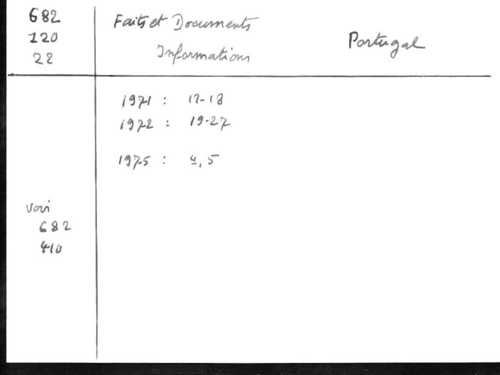 682
120
22
Faits et Documents
Informations
Portugal
1971 : 17-18
1972 : 19-27
1975 : 4, 5
voir
682
410